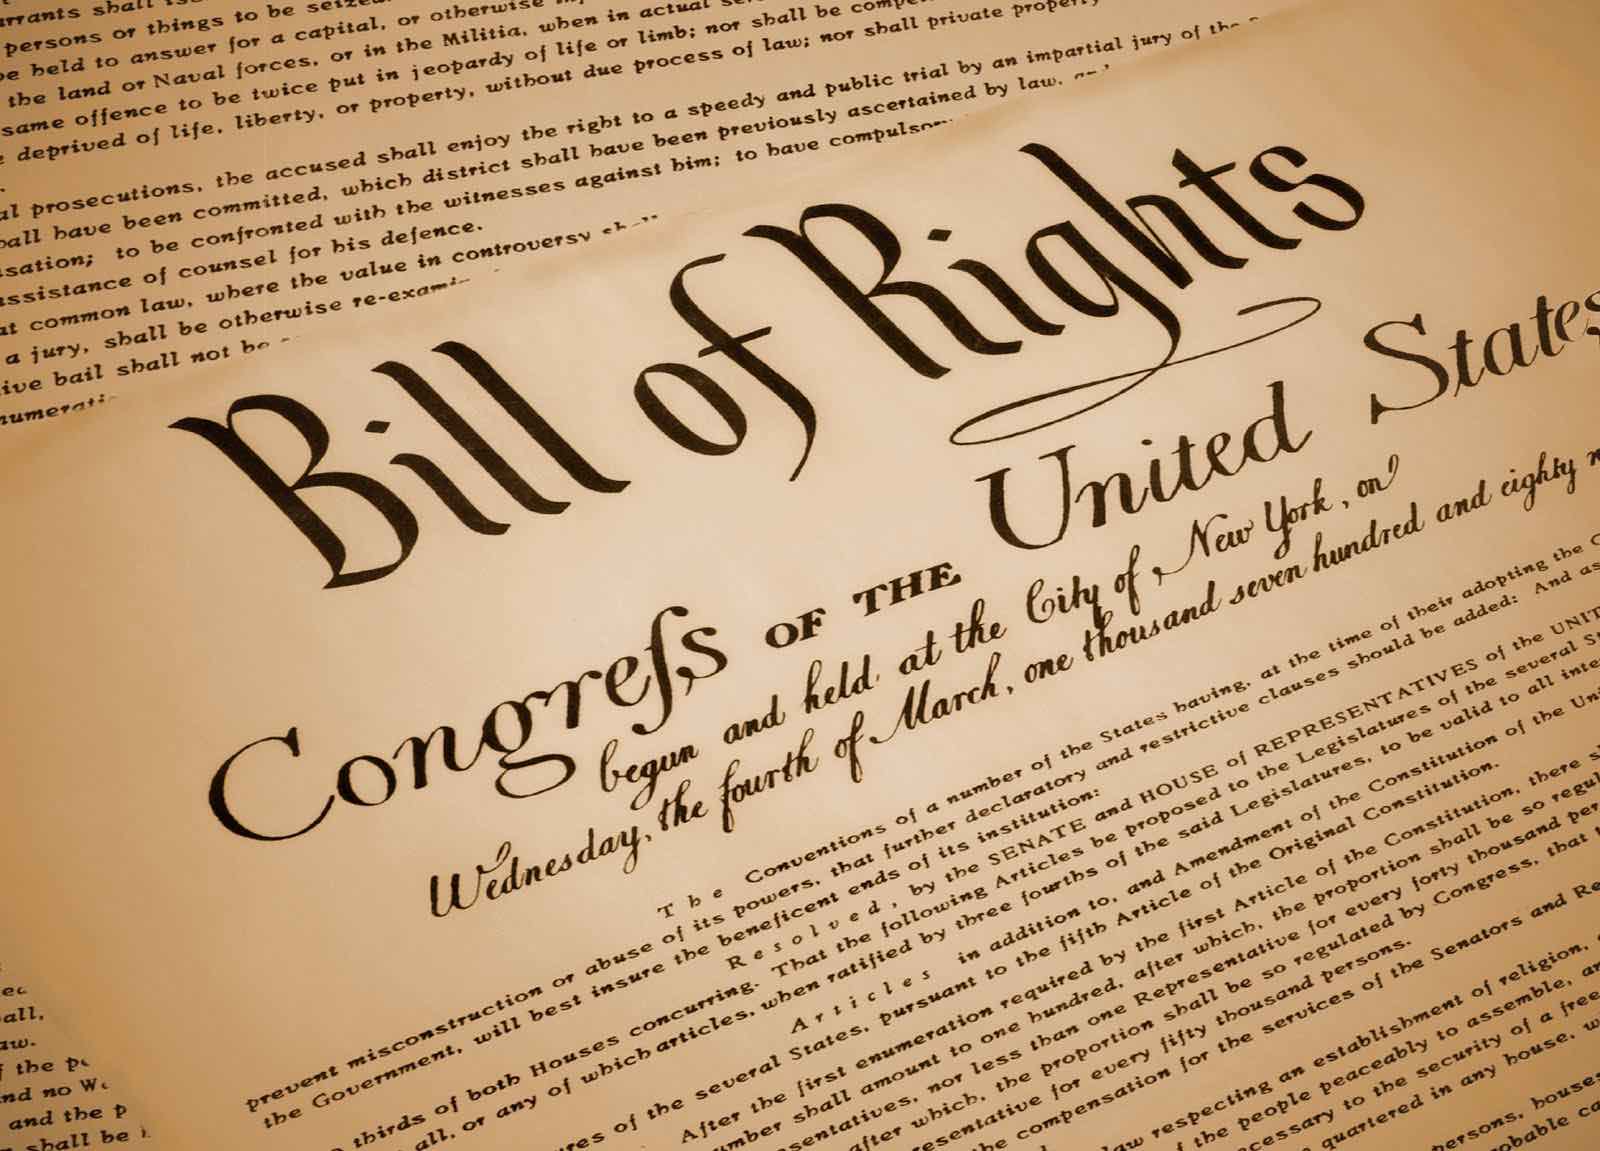 persons or things to be seized.
be held to answer for a capital, or otherwise
the land or Naval forces, or in the Militia, when in actual
same offence to be twice put in jeopardy of life or limb; nor shall be
deprived of life, liberty, or property, without due process of law; nor shall private property
al prosecutions, the accused shall enjoy the right to a speedy and public trial by an impartial jury of the
hall have been committed, which district shall have been previously ascertained by law, and
sation; to be confronted with the witnesses against him; to have compulsory
assistance of counsel for his defence.
at common law, where the value in controversy shall
a jury, shall be otherwise re-exami
ive bail shall not be
numerati
Bill of Rights
Congreſs OF THE United States
begun and held at the City of New York, on
Wednesday, the fourth of March, one thousand seven hundred and eighty n
The Conventions of a number of the States having, at the time of their adopting the C
prevent misconstruction or abuse of its powers, that further declaratory and restrictive clauses should be added: And as
the Government, will best insure the beneficent ends of its institution:
Resolved, by the SENATE and HOUSE of REPRESENTATIVES of the UNIT
thirds of both Houses concurring. That the following Articles be proposed to the Legislatures of the several St
all, or any of which articles, when ratified by three fourths of the said Legislatures, to be valid to all inte
Articles in addition to, and Amendment of the Constitution of the Uni
res of the several States, pursuant to the fifth Article of the Original Constitution.
After the first enumeration required by the first Article of the Constitution, there s
umber shall amount to one hundred, after which, the proportion shall be so regul
sentatives, nor less than one Representative for every forty thousand per
after which, the proportion shall be so regulated by Congress, that t
resentative for every fifty thousand persons.
the compensation for the services of the Senators and Re
law respecting an establishment of religion,
f the people peaceably to assemble, an
ecessary to the security of a free
quartered in any house, w
persons, houses
robable ca
all,
aw.
f the pe
nd no Wa
and the p
shall be i